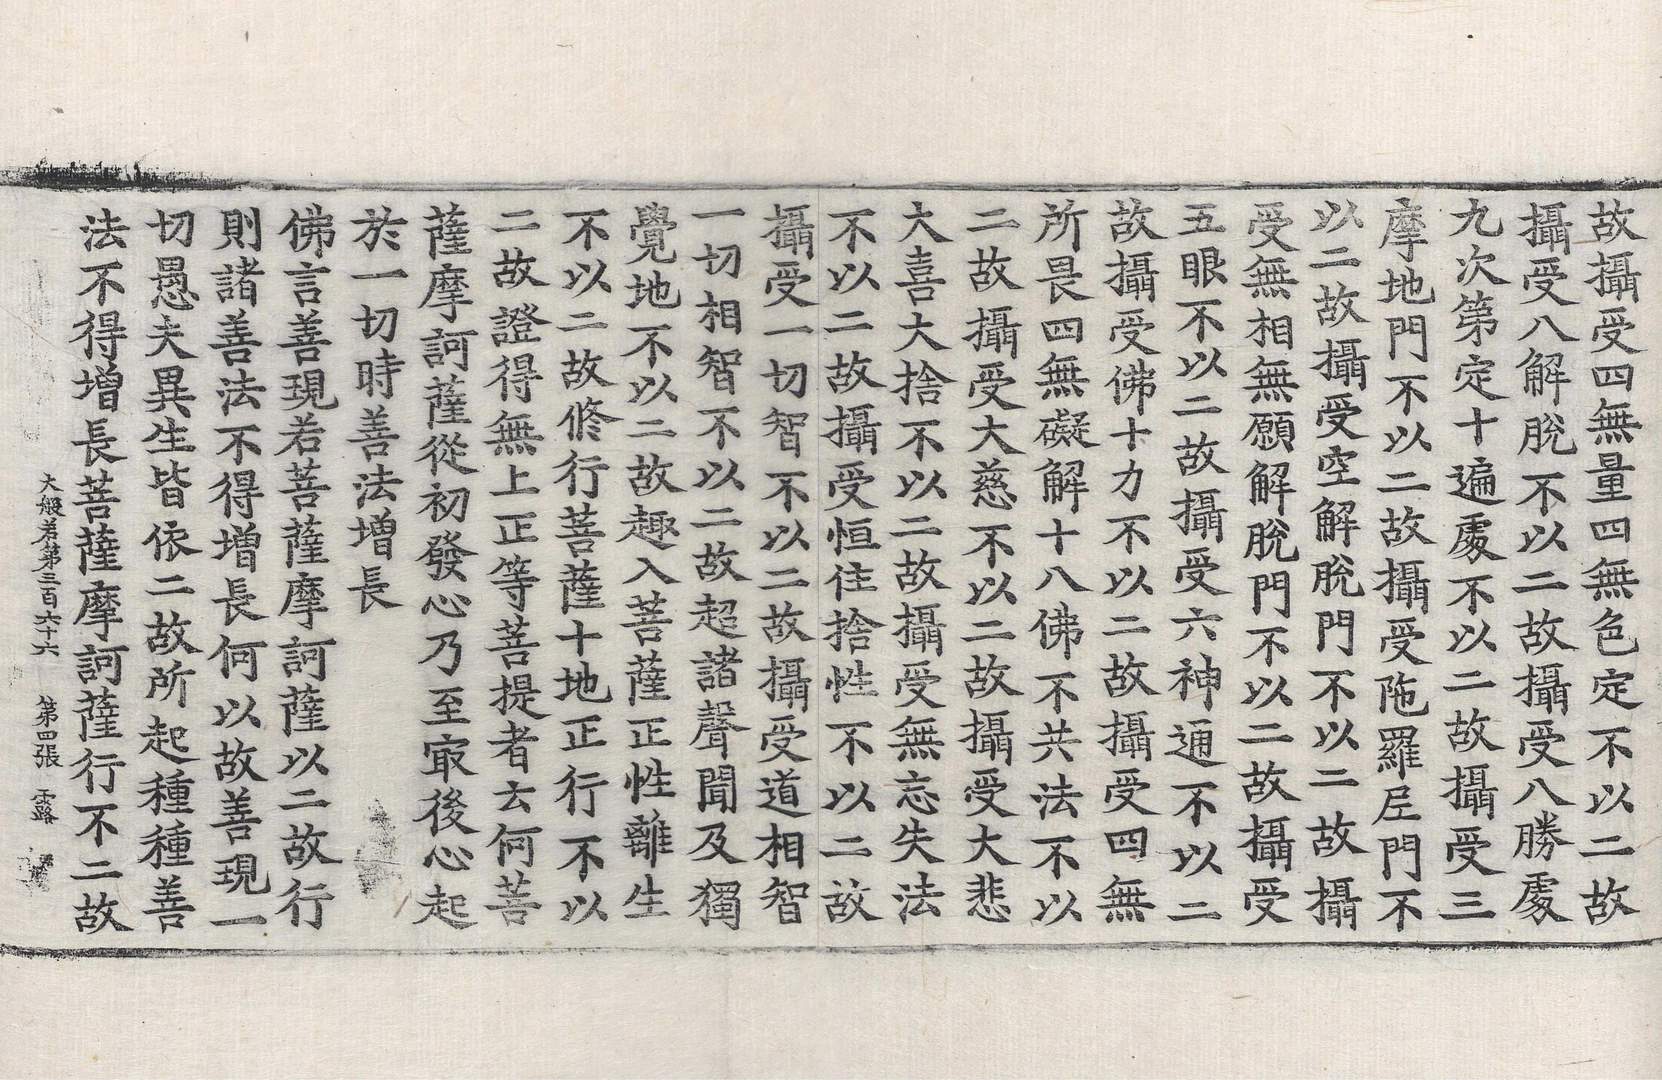 故攝受四無量四無色定不以二故
攝受八解脫不以二故攝受八勝處
九次第定十遍處不以二故攝受三
摩地門不以二故攝受陁羅尼門不
以二故攝受空解脫門不以二故攝
受無相無願解脫門不以二故攝受
五眼不以二故攝受六神通不以二
故攝受佛十力不以二故攝受四無
所畏四無礙解十八佛不共法不以
二故攝受大慈不以二故攝受大悲
大喜大捨不以二故攝受無忘失法
不以二故攝受恒住捨性不以二故
攝受一切智不以二故攝受道相智
一切相智不以二故超諸聲聞及獨
覺地不以二故趣入菩薩正性離生
不以二故修行菩薩十地正行不以
二故證得無上正等菩提者云何菩
薩摩訶薩從初發心乃至㝡後心起
於一切時善法增長
佛言善現若菩薩摩訶薩以二故行
則諸善法不得增長何以故善現一
切愚夫異生皆依二故所起種種善
法不得增長菩薩摩訶薩行不二故
大般若第三百六十六 第四張